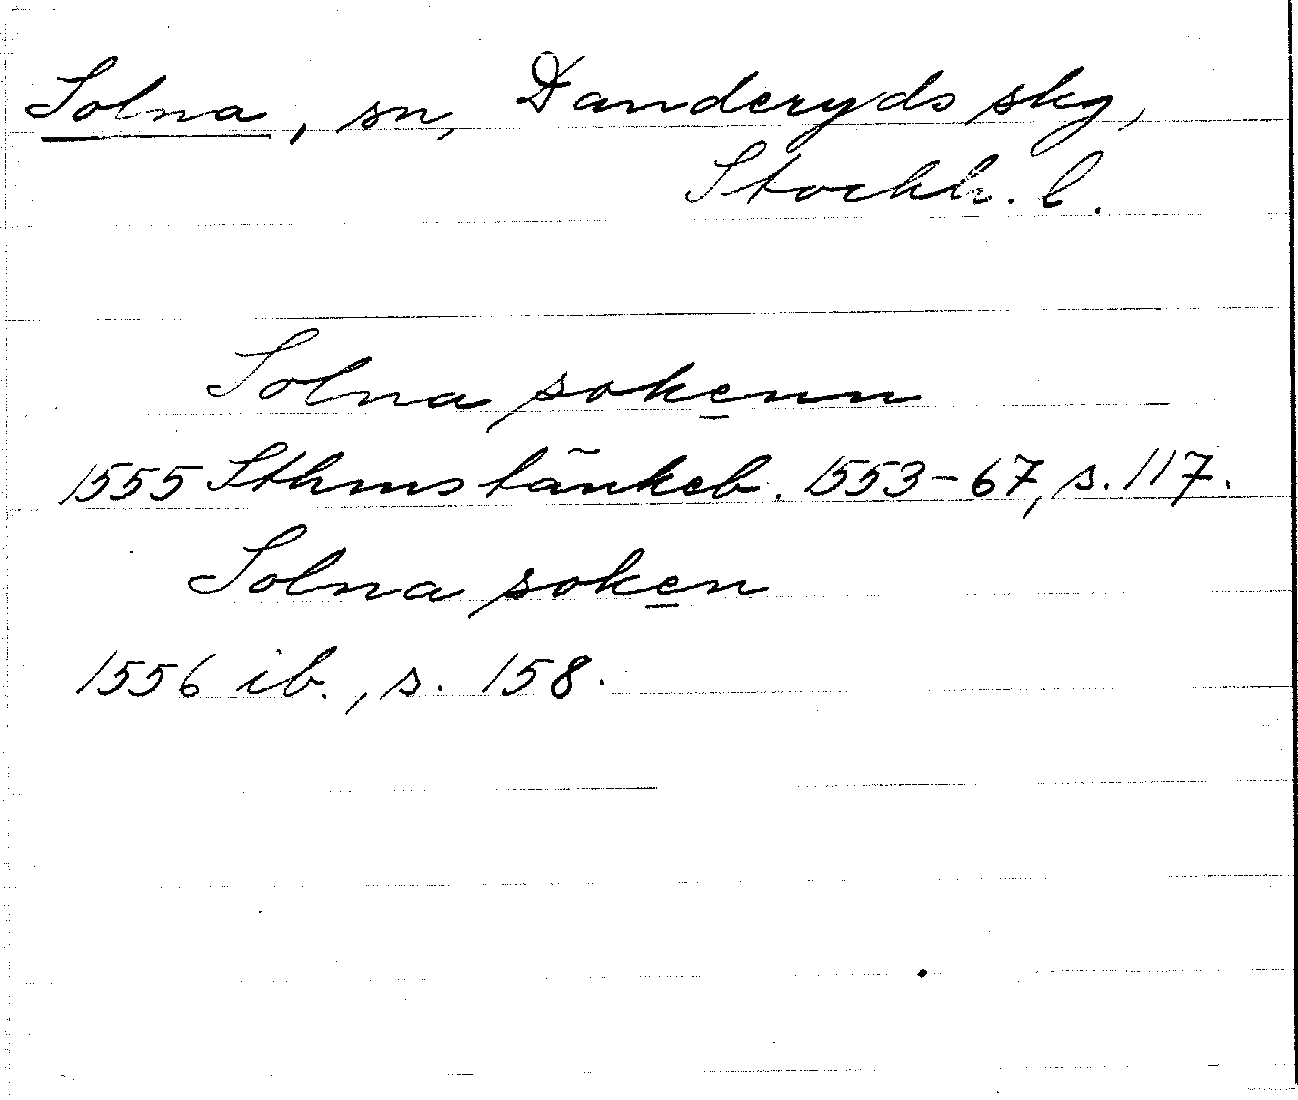 Solna, sn, Danderyds skg,
Stockh. l.
Solna sokenn
1555 Sthms tänkeb. 1553-67, s. 117.
Solna soken
1556 ib., s. 158.